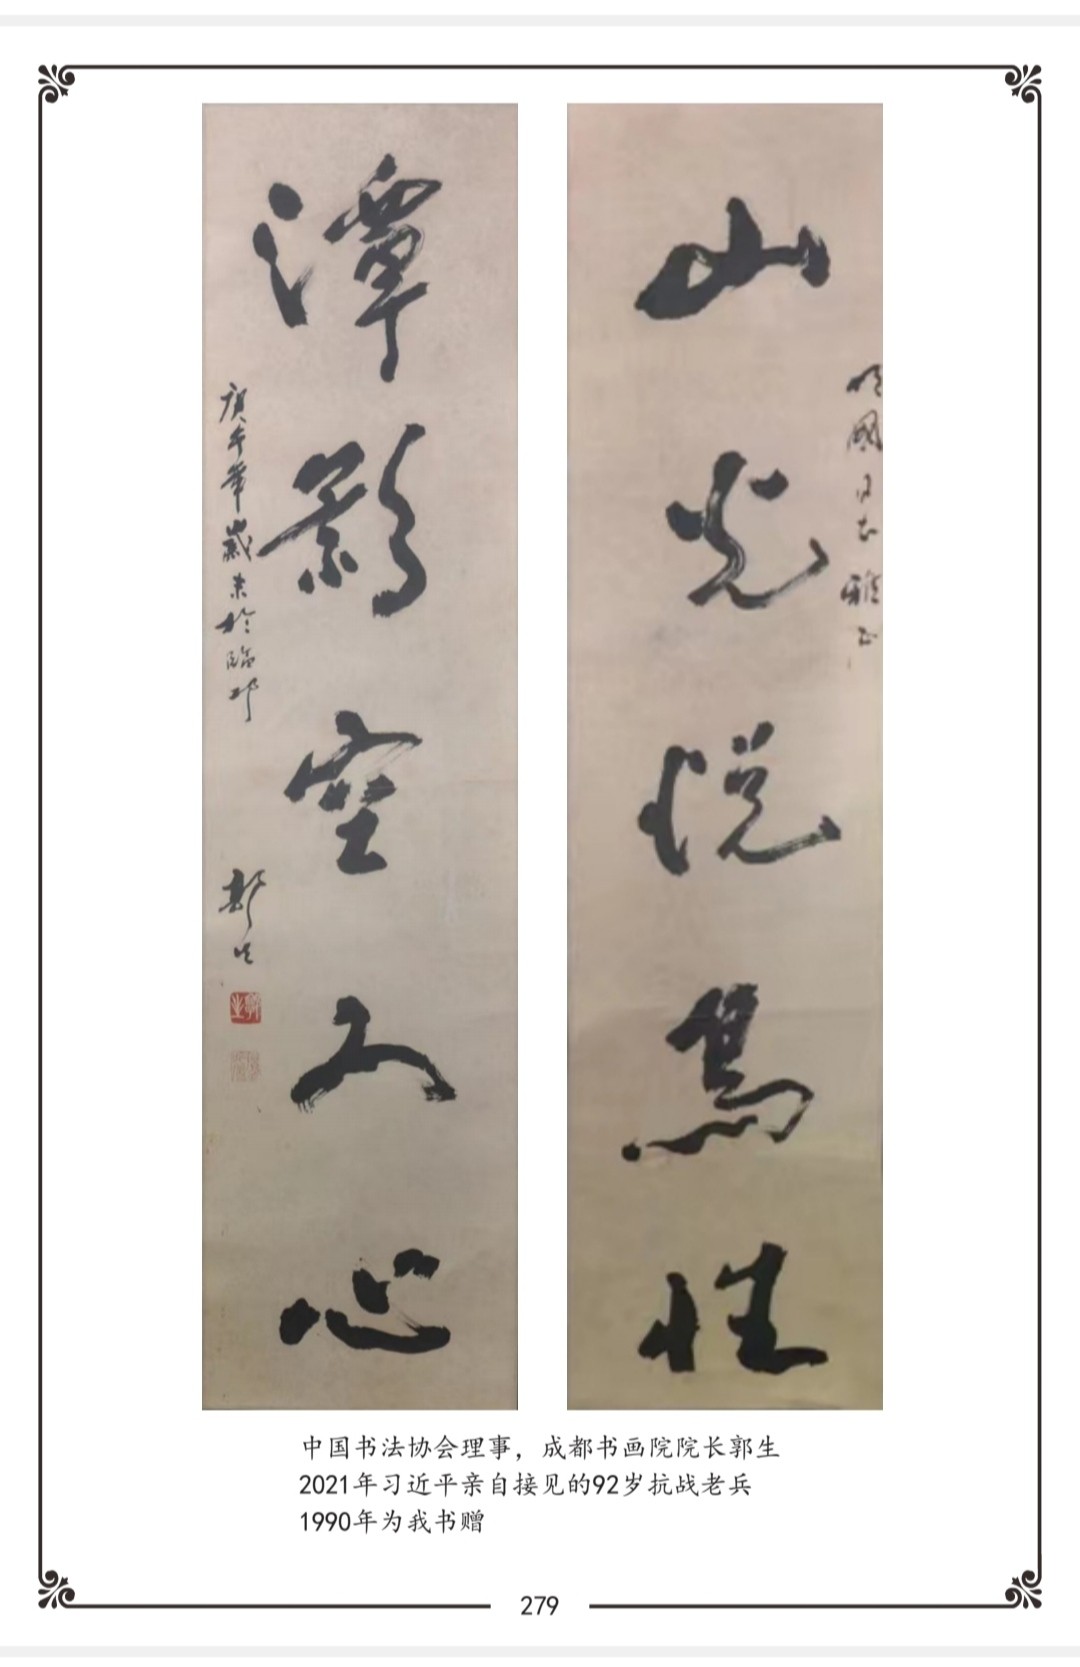 山光悦鸟性
国同志雅正
潭影空人心
庚午年岁末於临邛
郭生
中国书法协会理事，成都书画院院长郭生
2021年习近平亲自接见的92岁抗战老兵
1990年为我书赠
279